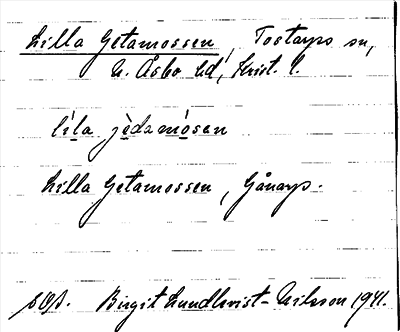 Lilla Getamossen, Tostarps sn,
N. Åsbo hd, Krist. l.
lìla jèdamòsen
Lilla Getamossen, Gånarp.
Birgit Lundkvist-Nilsson 1941.